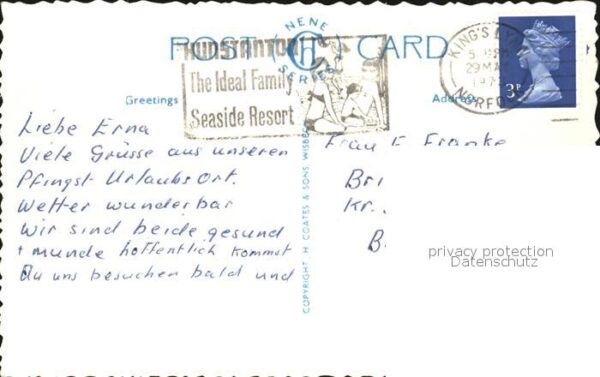 NENE
POST CARD
SERIES
HUNSTANTON
The Ideal Family
Seaside Resort
KING'S LYNN
29 MAY
NORFOLK
3P
Greetings
Address
Liebe Erna
Viele Grüsse aus unseren
Pfingst Urlaubsort.
Wetter wunderbar
Wir sind beide gesund
+ munde hoffentlich kommst
Du uns besuchen bald und
COPYRIGHT H COATES & SONS WISBE
Frau E Franke
Bri
Kr.
B.
privacy protection
Datenschutz